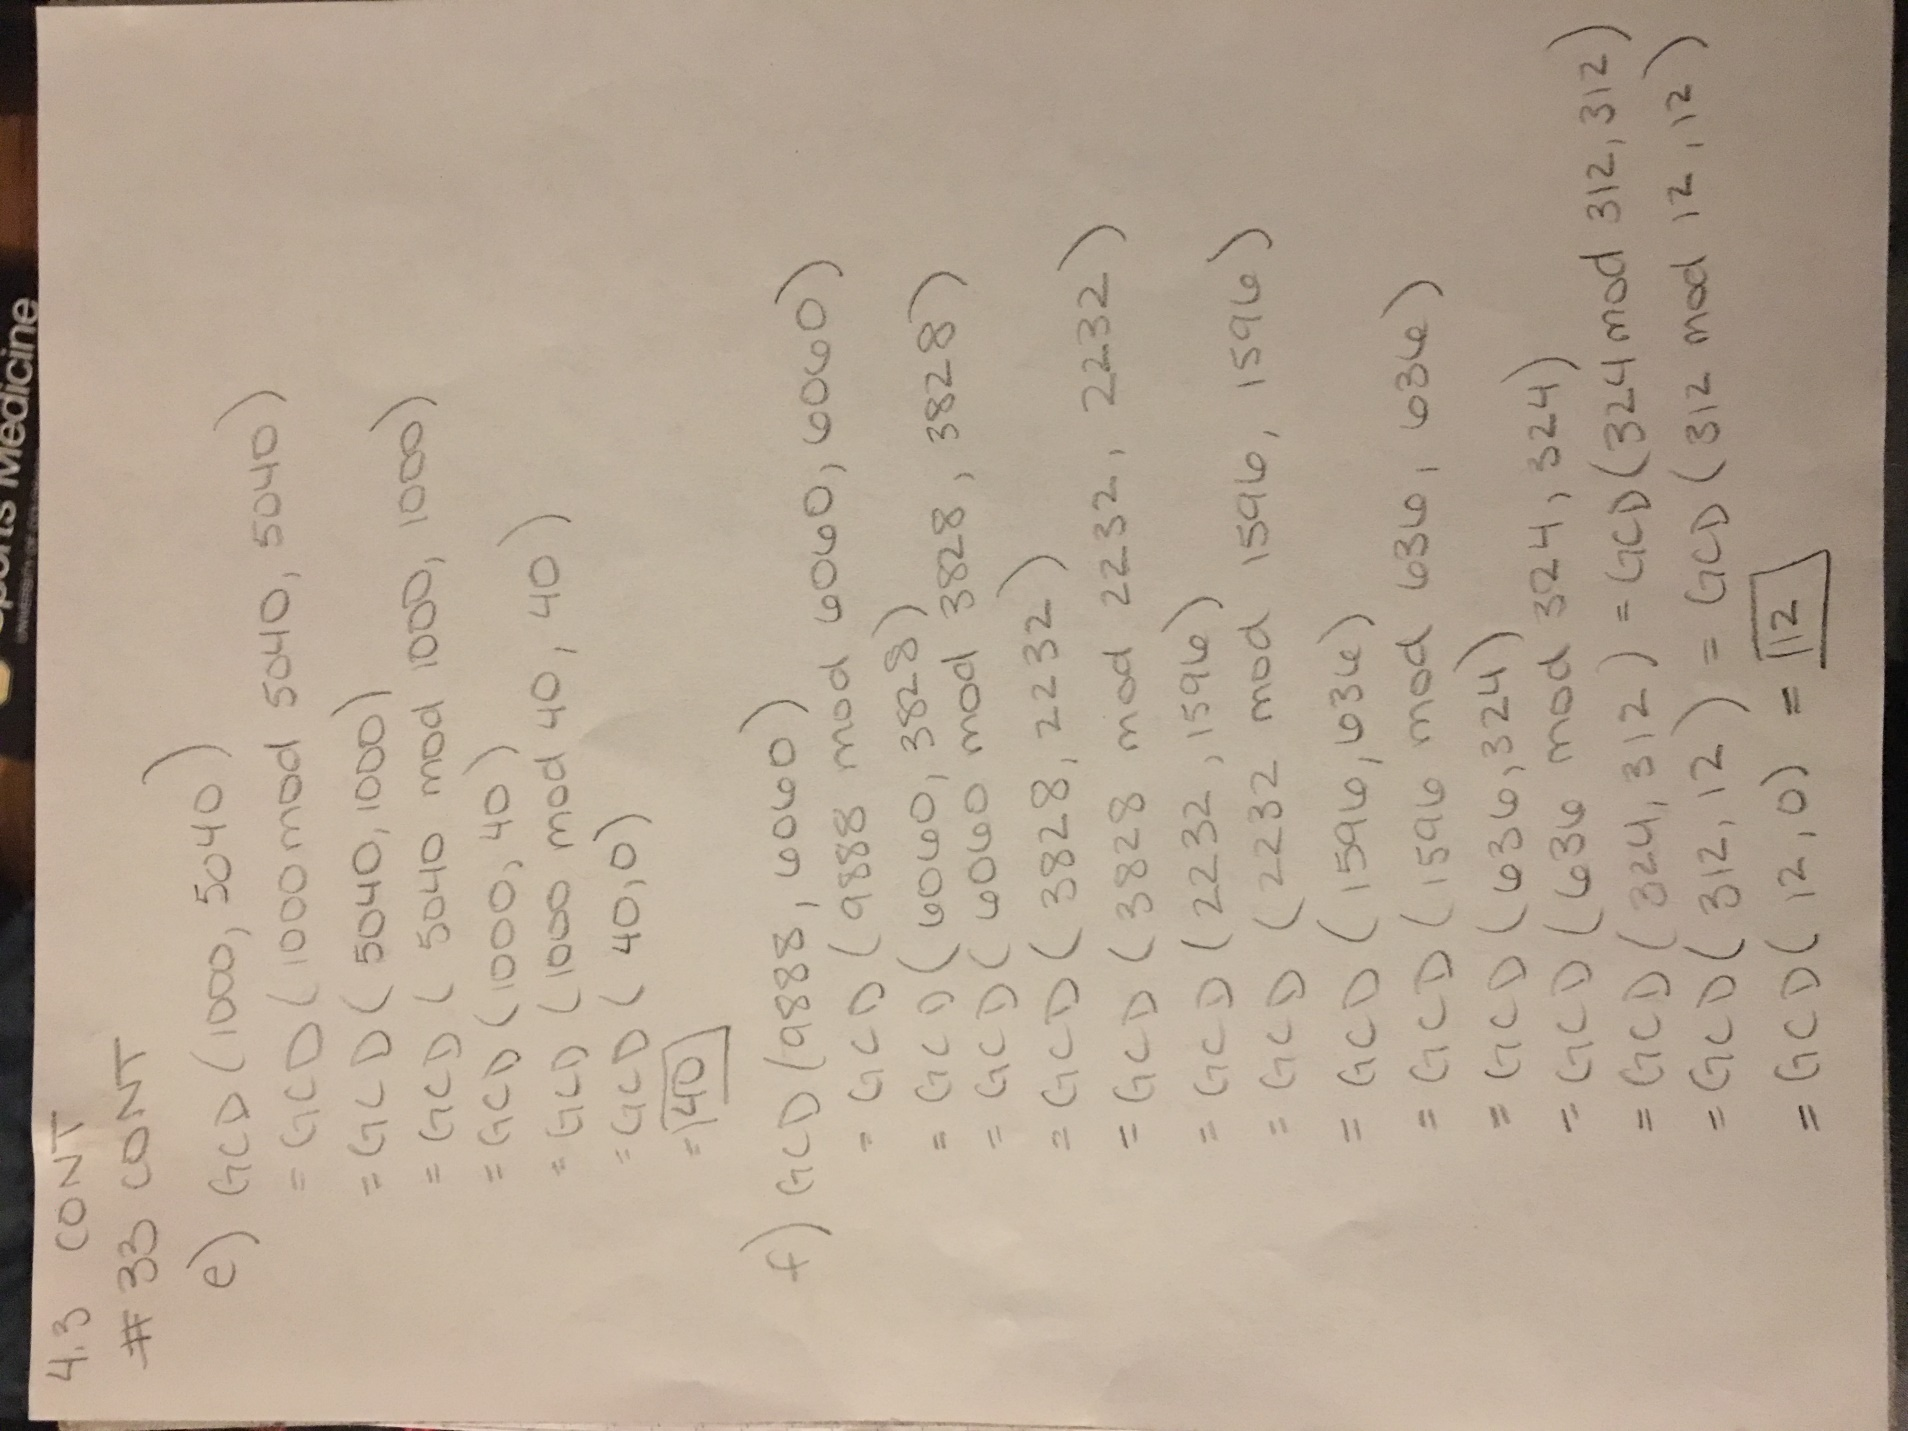 Sports Medicine
4.3 CONT
#33 CONT
e) GCD (1000, 5040)
= GCD (1000 mod 5040, 5040)
= GCD (5040, 1000)
= GCD (5040 mod 1000, 1000)
= GCD (1000, 40)
= GCD (1000 mod 40, 40)
= GCD (40, 0)
= 40
f) GCD (9888, 6060)
= GCD (9888 mod 6060, 6060)
= GCD (6060, 3828)
= GCD (6060 mod 3828, 3828)
= GCD (3828, 2232)
= GCD (3828 mod 2232, 2232)
= GCD (2232, 1596)
= GCD (2232 mod 1596, 1596)
= GCD (1596, 636)
= GCD (1596 mod 636, 636)
= GCD (636, 324)
= GCD (636 mod 324, 324)
= GCD (324, 312) = GCD (324 mod 312, 312)
= GCD (312, 12) = GCD (312 mod 12, 12)
= GCD (12, 0) = 12